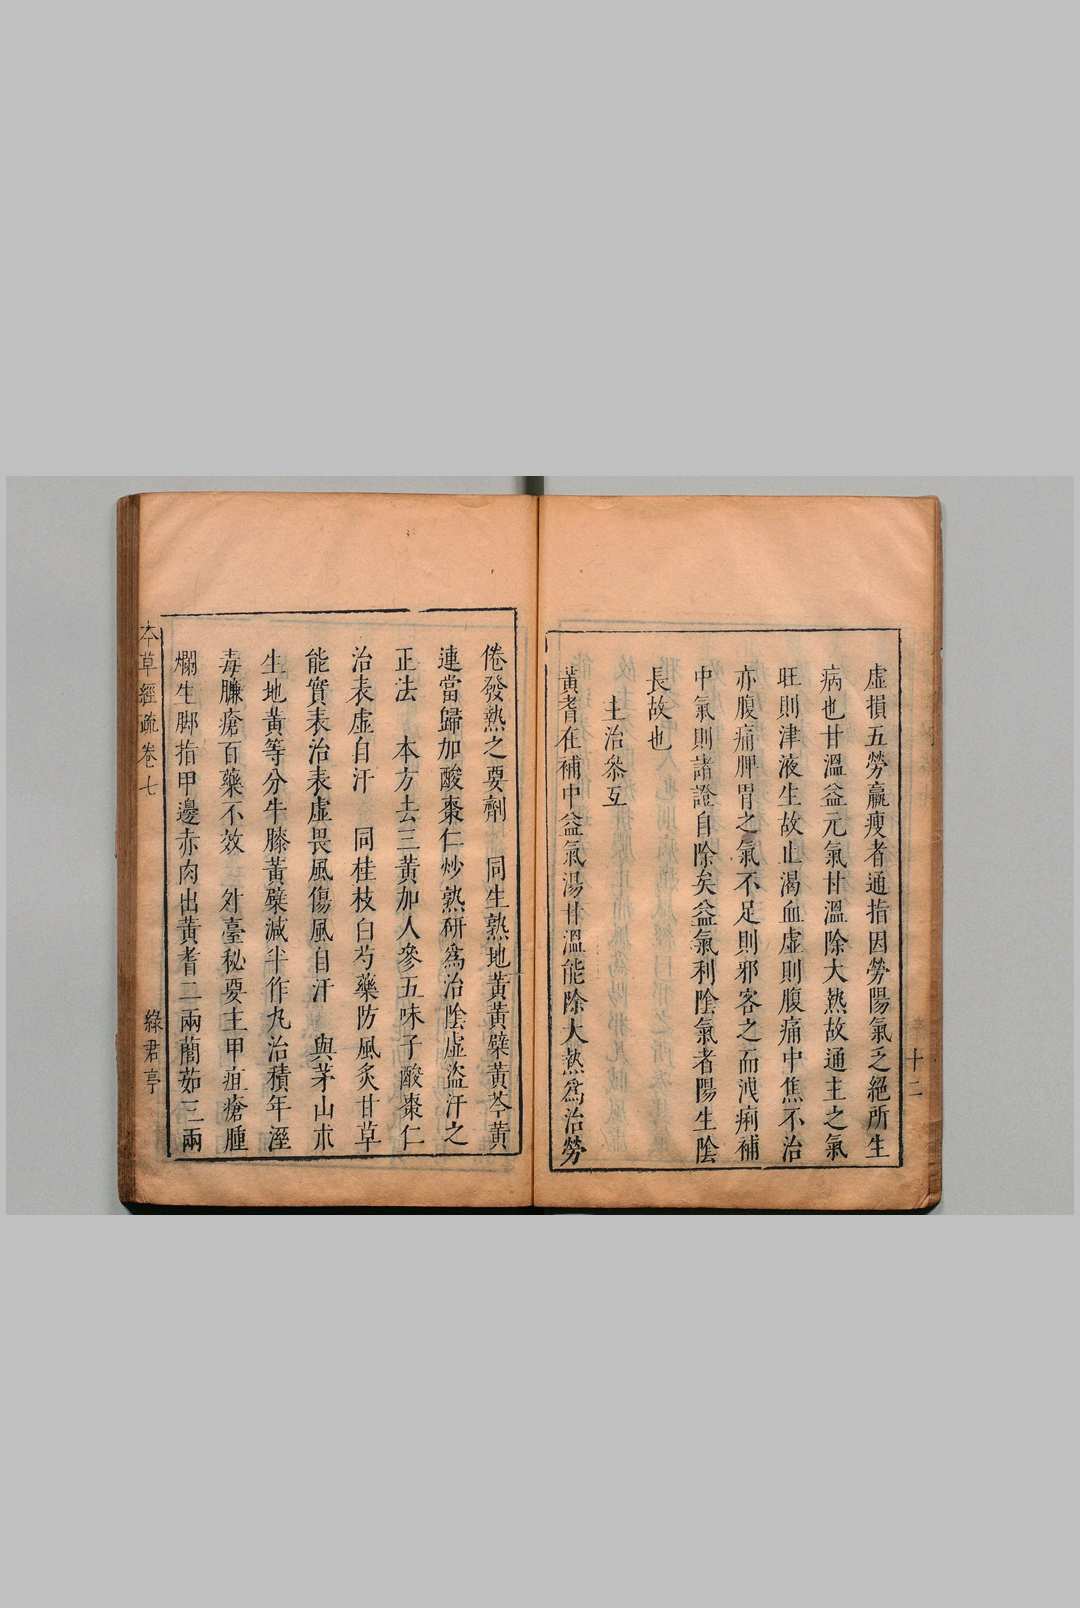 虛損五勞羸瘦者通指因勞陽氣乏絕所生
病也甘溫益元氣甘溫除大熱故通主之氣
旺則津液生故止渴血虛則腹痛中焦不治
亦腹痛脾胃之氣不足則邪客之而洩痢補
中氣則諸證自除矣益氣利陰氣者陽生陰
長故也
主治叅互
黃耆在補中益氣湯甘溫能除大熱爲治勞
十二
倦發熱之要劑 同生熟地黃黃蘗黃芩黃
連當歸加酸棗仁炒熟研爲治陰虛盜汗之
正法 本方去三黃加人參五味子酸棗仁
治表虛自汗 同桂枝白芍藥防風炙甘草
能實表治表虛畏風傷風自汗 與茅山朮
生地黃等分牛膝黃蘗減半作丸治積年溼
毒臁瘡百藥不效 外臺秘要主甲疽瘡腫
爛生脚指甲邊赤肉出黃耆二兩䕡茹三兩
本草經疏卷七
綠君亭